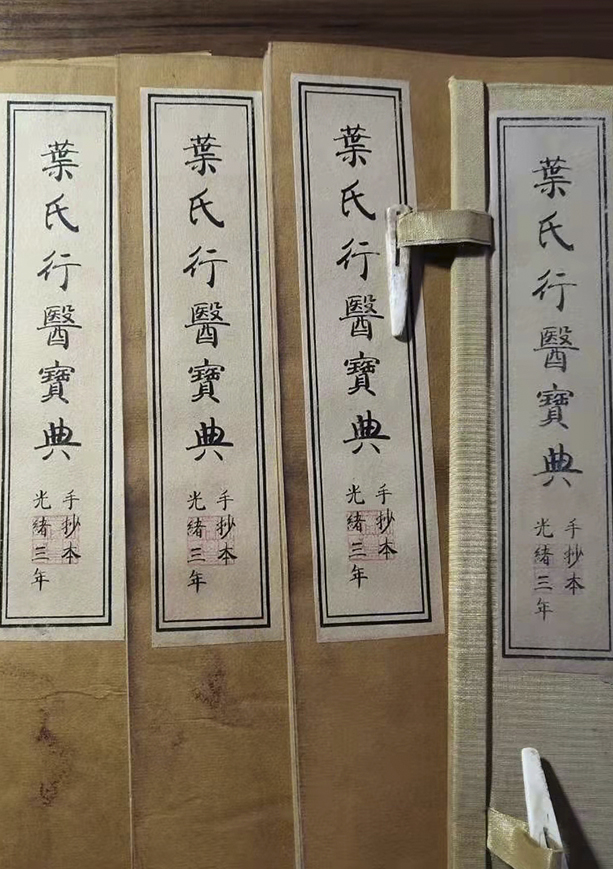 葉氏行醫寶典
手抄本
光緒三年
葉氏行醫寶典
手抄本
光緒三年
葉氏行醫寶典
手抄本
光緒三年
葉氏行醫寶典
手抄本
光緒三年